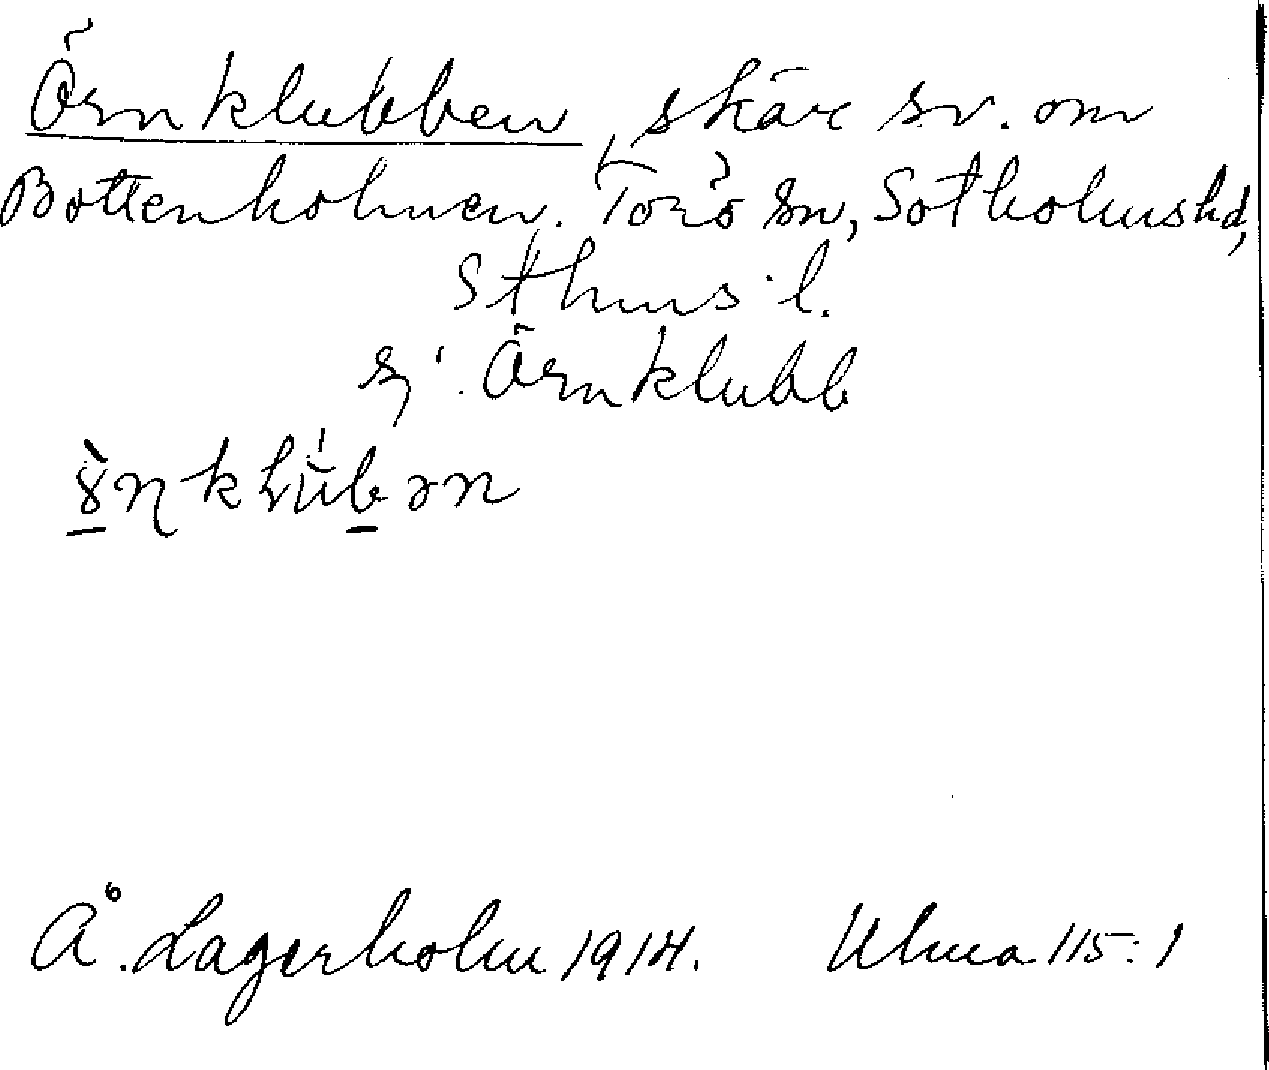 Örnklubben, skär sv. om
Bottenholmen. Torö sn, Sotholms hd,
Sthms l.
Örnklubb
Å. Lagerholm 1914. Ulma 115:1